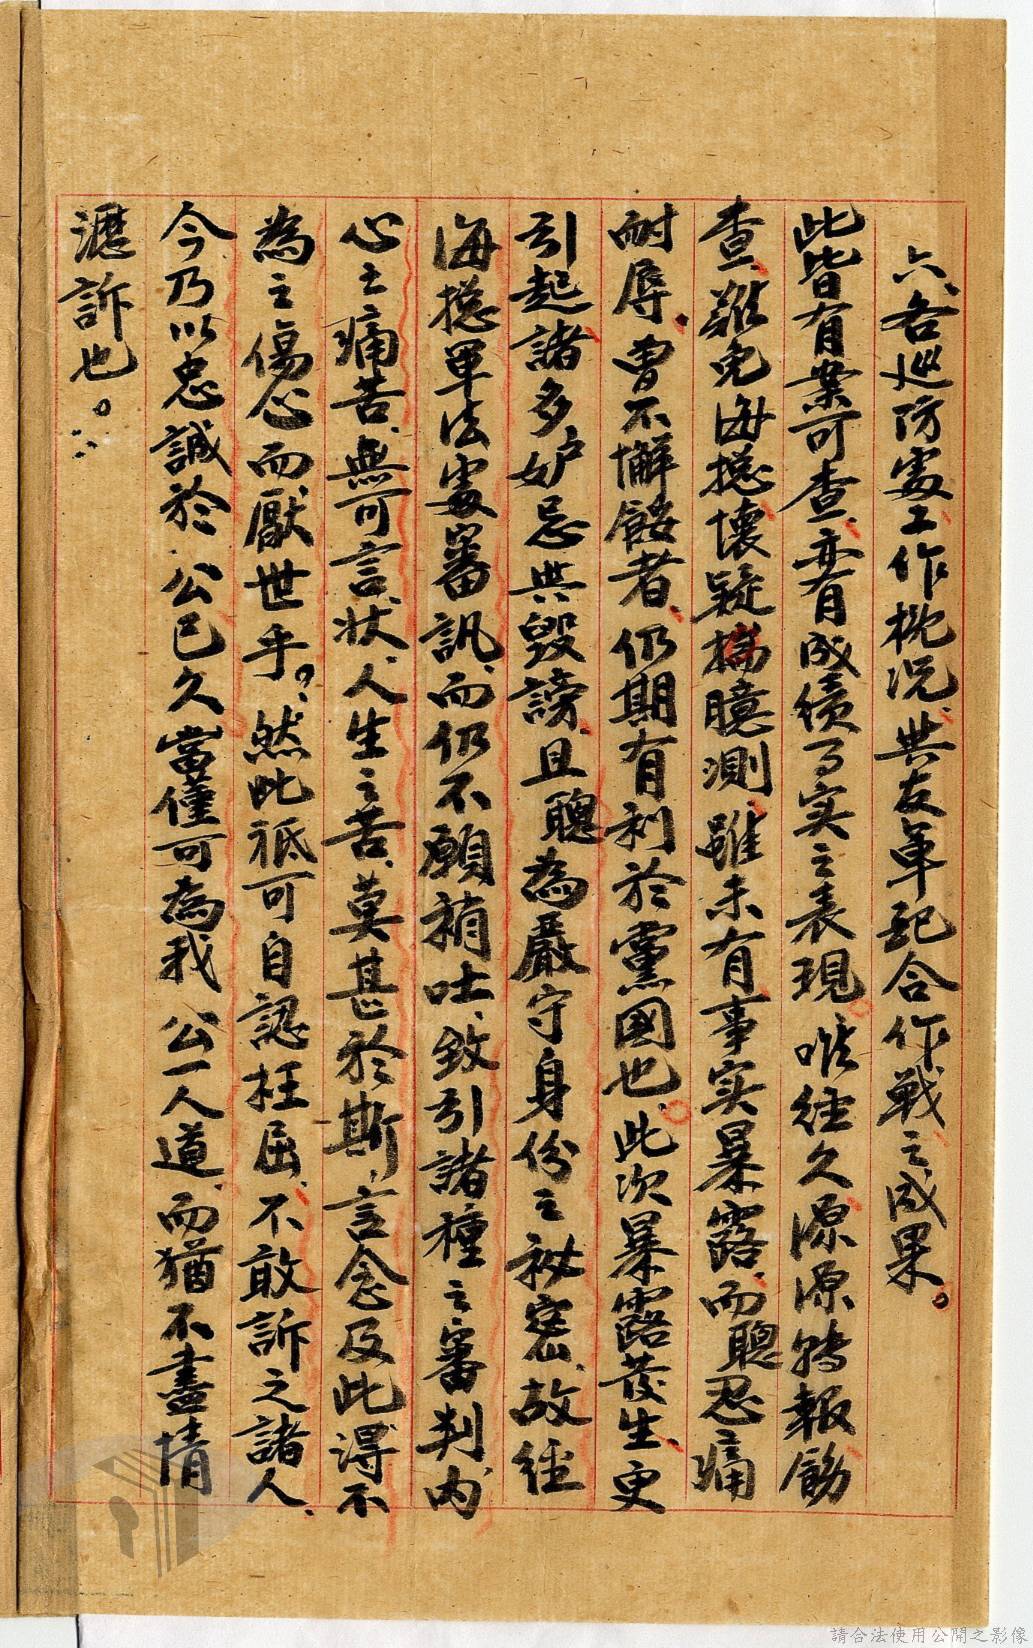 六、各巡防處工作概况、與友軍配合作戰之成果。
此皆有案可查、亦有成績事实之表現、唯經久源源轉報飭
查、難免海總懷疑揣臆測、雖未有事实暴露、而聰忍痛
耐辱、曹不懈餒者、仍期有利於黨國也、此次暴露發生、更
引起諸多妒忌與毀謗、且聰為嚴守身份之祕密、故經
海總軍法處審訊、而仍不願稍吐、致引諸種之審判、內
心之痛苦、無可言狀、人生之苦、莫甚於斯、言念及此、得不
為之傷心而厭世乎。、然此祗可自認枉屈、不敢訴之諸人、
今乃以忠誠於 公已久、當僅可為我 公一人道、而猶不盡情
瀝訴也。
請合法使用公開之影像